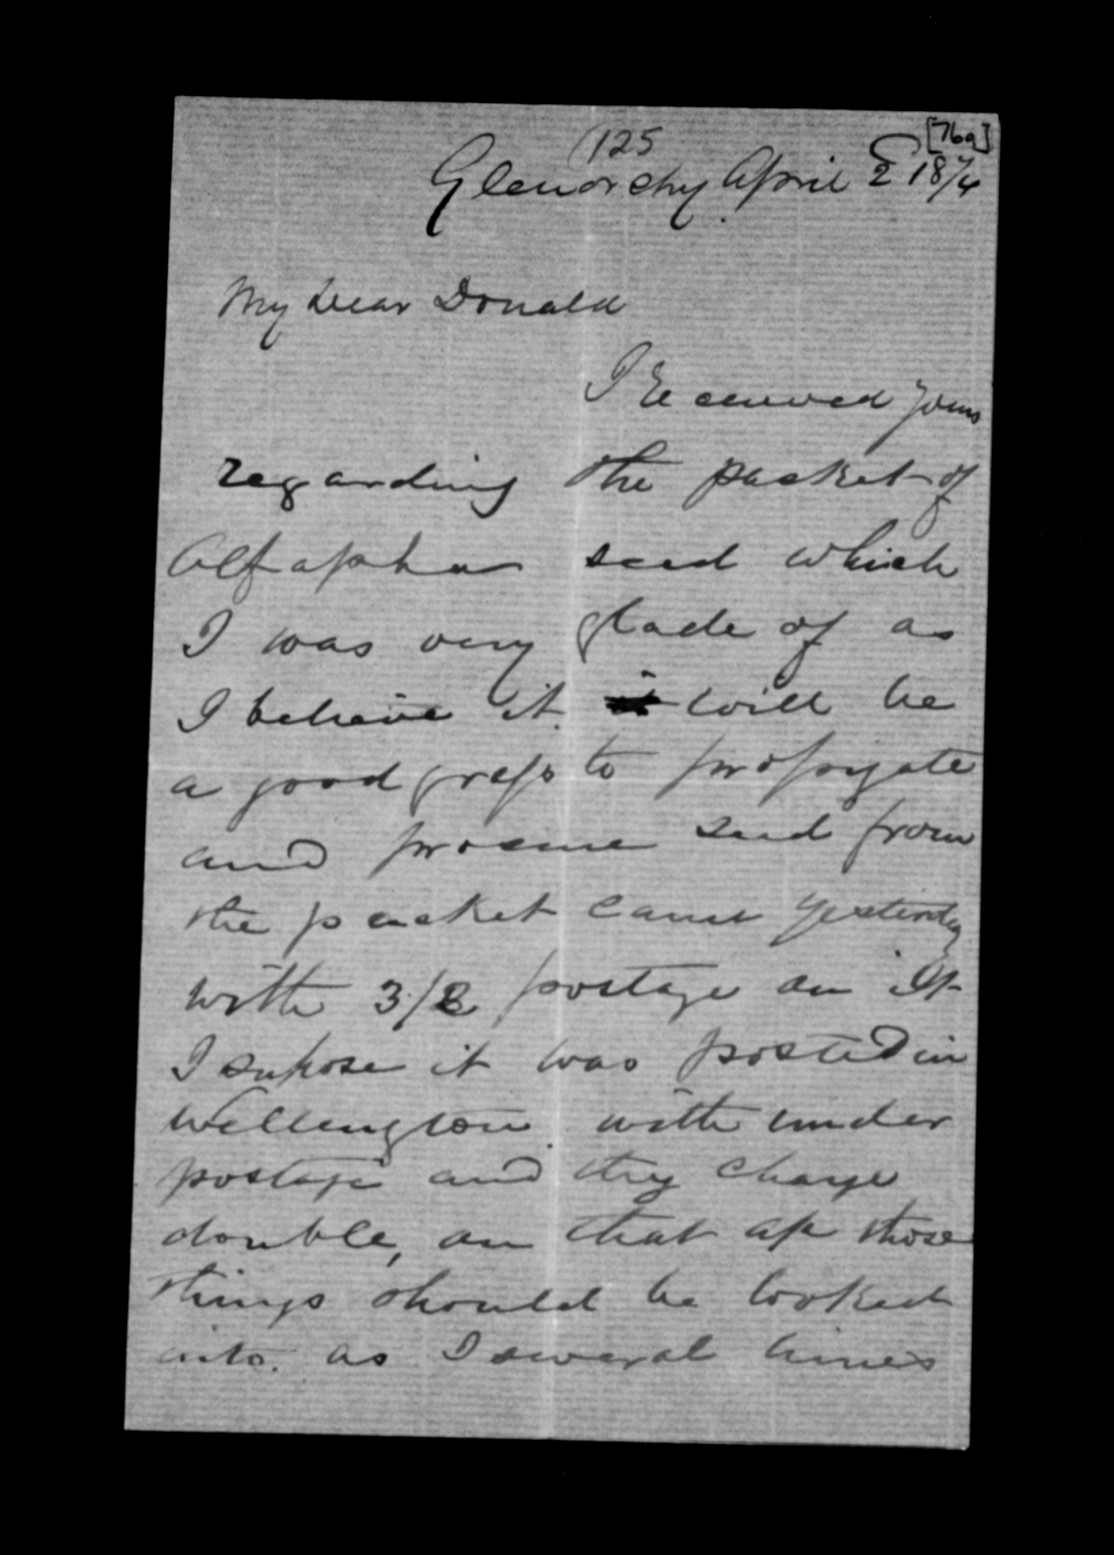 125
[76a]
Glenorchy April 2 1874
My Dear Donald
I received yours
regarding the packet of
Alfapha seed which
I was very glade of as
I beheive it will be
a good grass to propigate
and procure seed from
the packet came yesterday
with 3/8 postage on it
I supose it was posted in
Wellington. with under
postage and they charge
double, on that those
things should be looked
into. as I several times